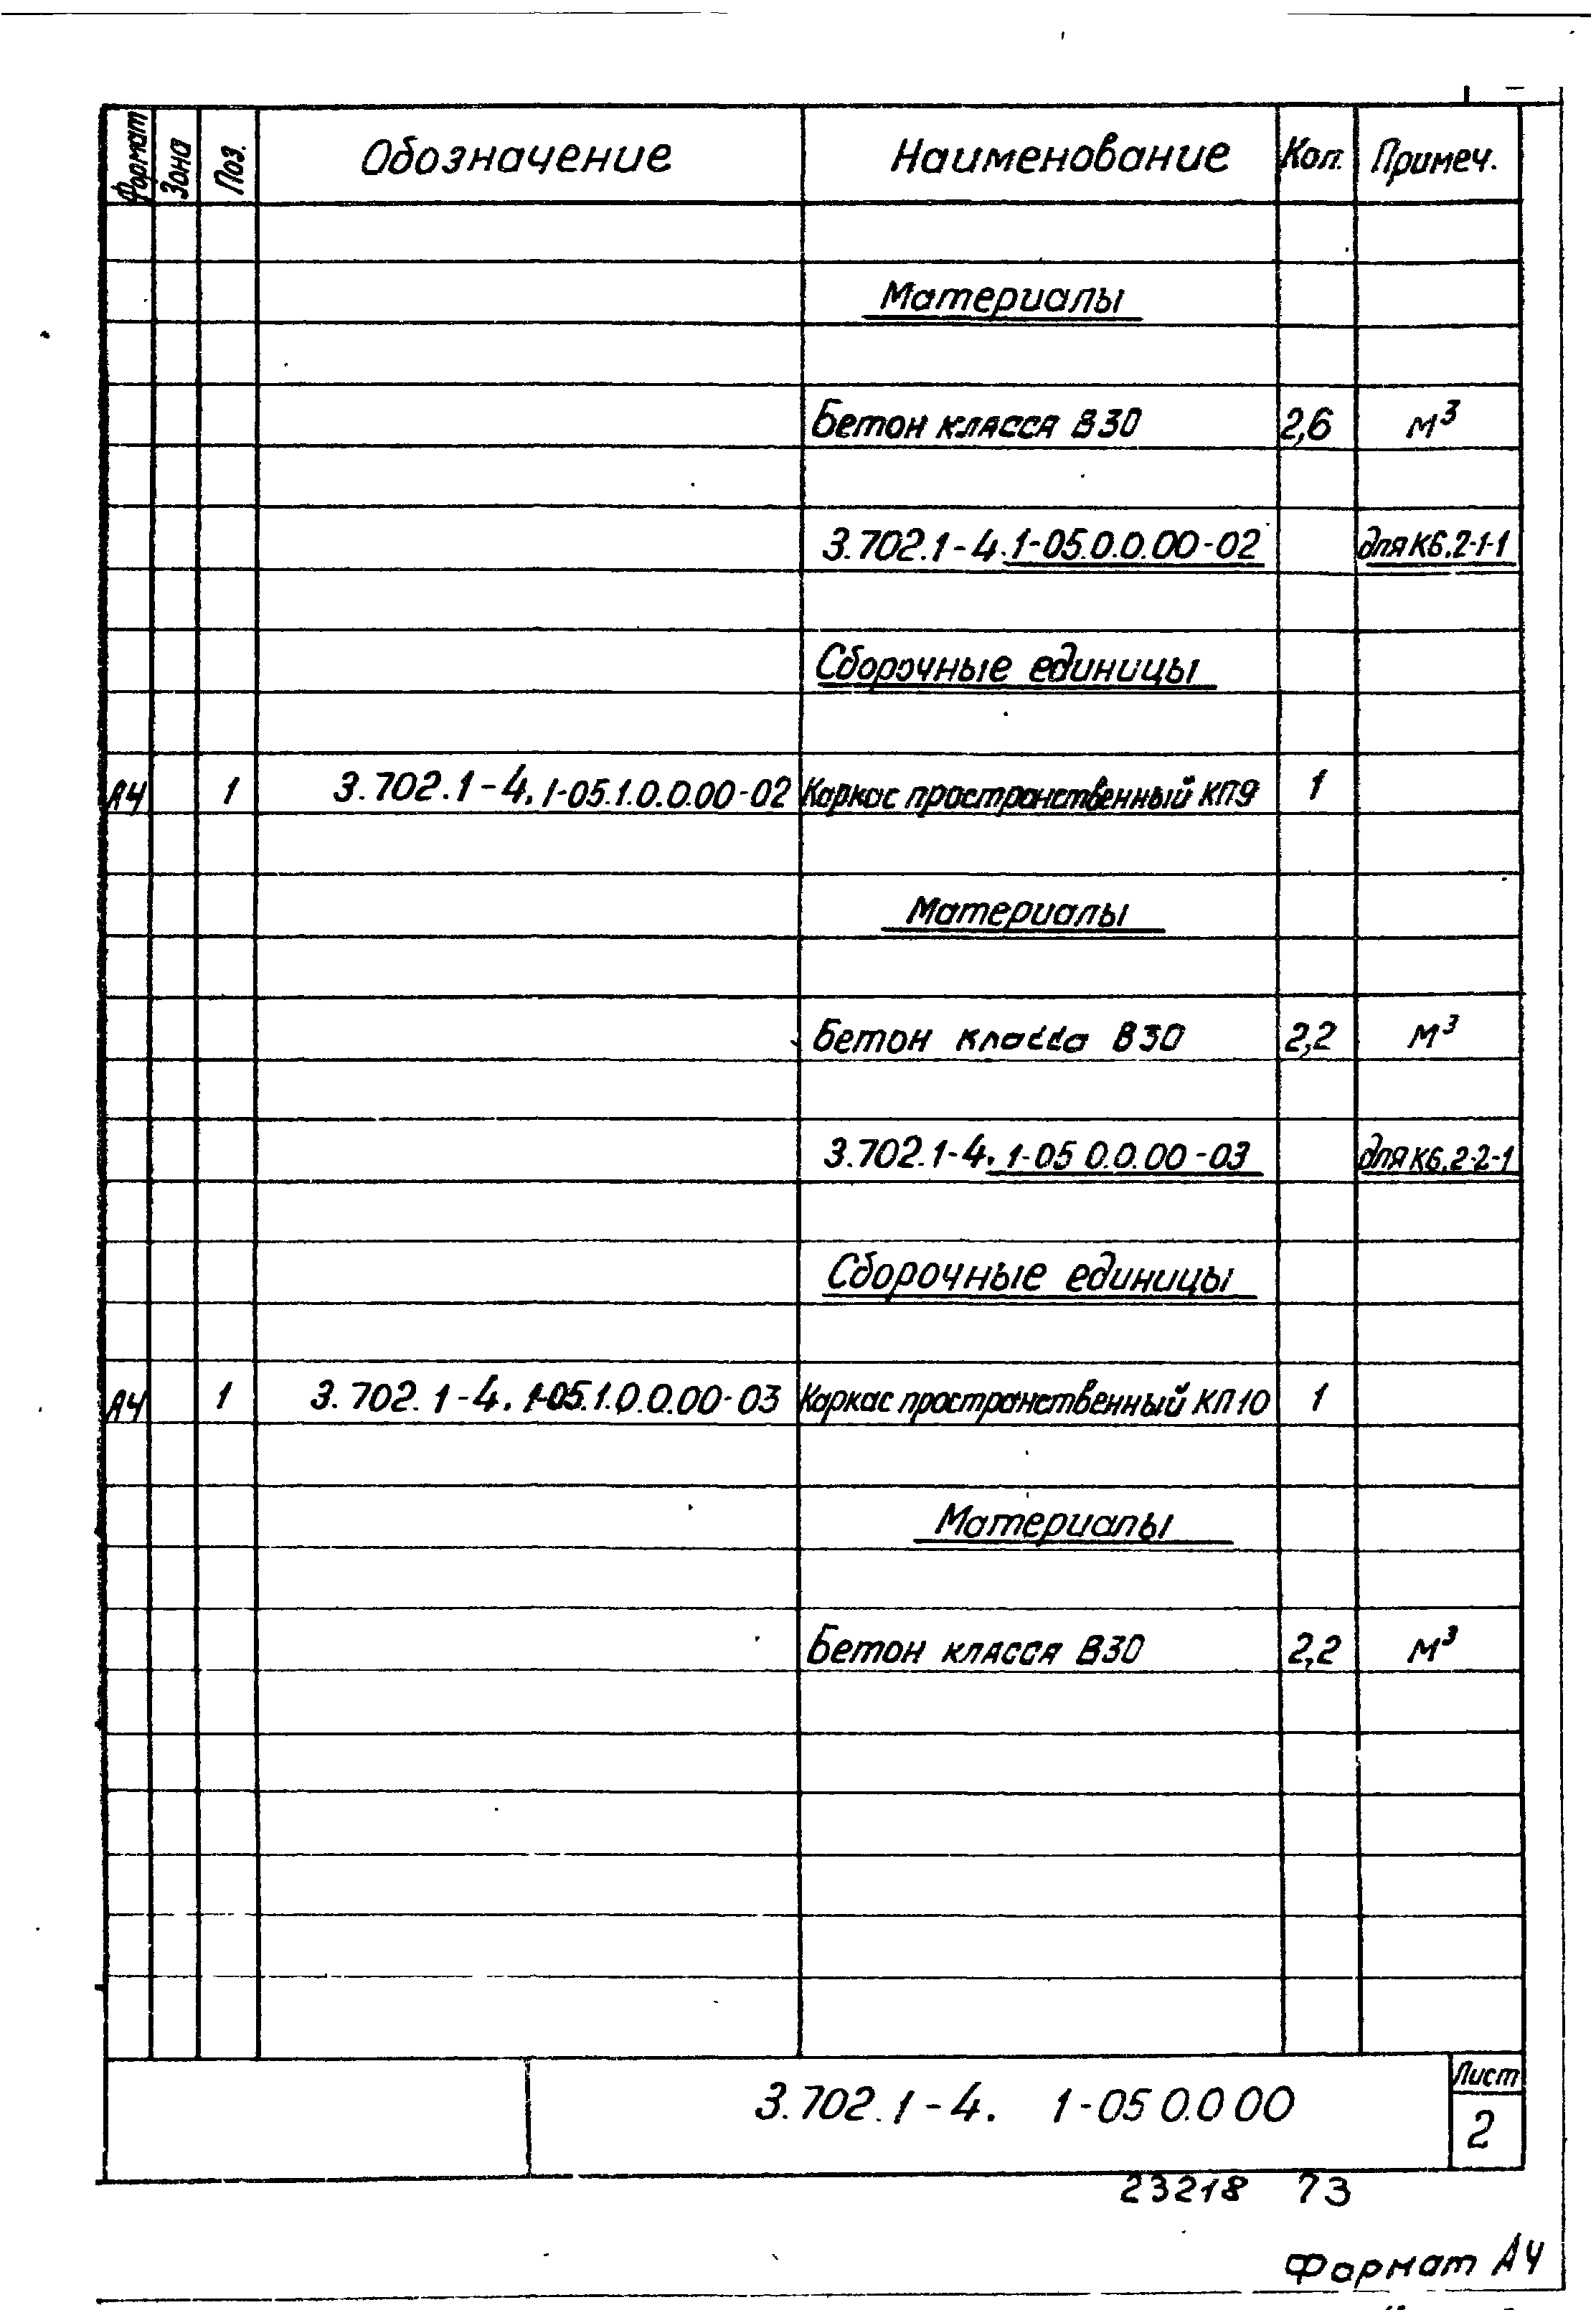 Формат Зона Поз. Обозначение Наименование Кол. Примеч.
Материалы
Бетон класса В30 2,6 м³
3.702.1-4.1-05.0.0.00-02 для К6.2-1-1
Сборочные единицы
А4 1 3.702.1-4.1-05.1.0.0.00-02 Каркас пространственный КП9 1
Материалы
Бетон класса В30 2,2 м³
3.702.1-4.1-05 0.0.00-03 для К6.2-2-1
Сборочные единицы
А4 1 3.702.1-4.1-05.1.0.0.00-03 Каркас пространственный КП10 1
Материалы
Бетон класса В30 2,2 м³
3.702.1-4. 1-05 0.0 00 Лист
2
23218 73
Формат А4